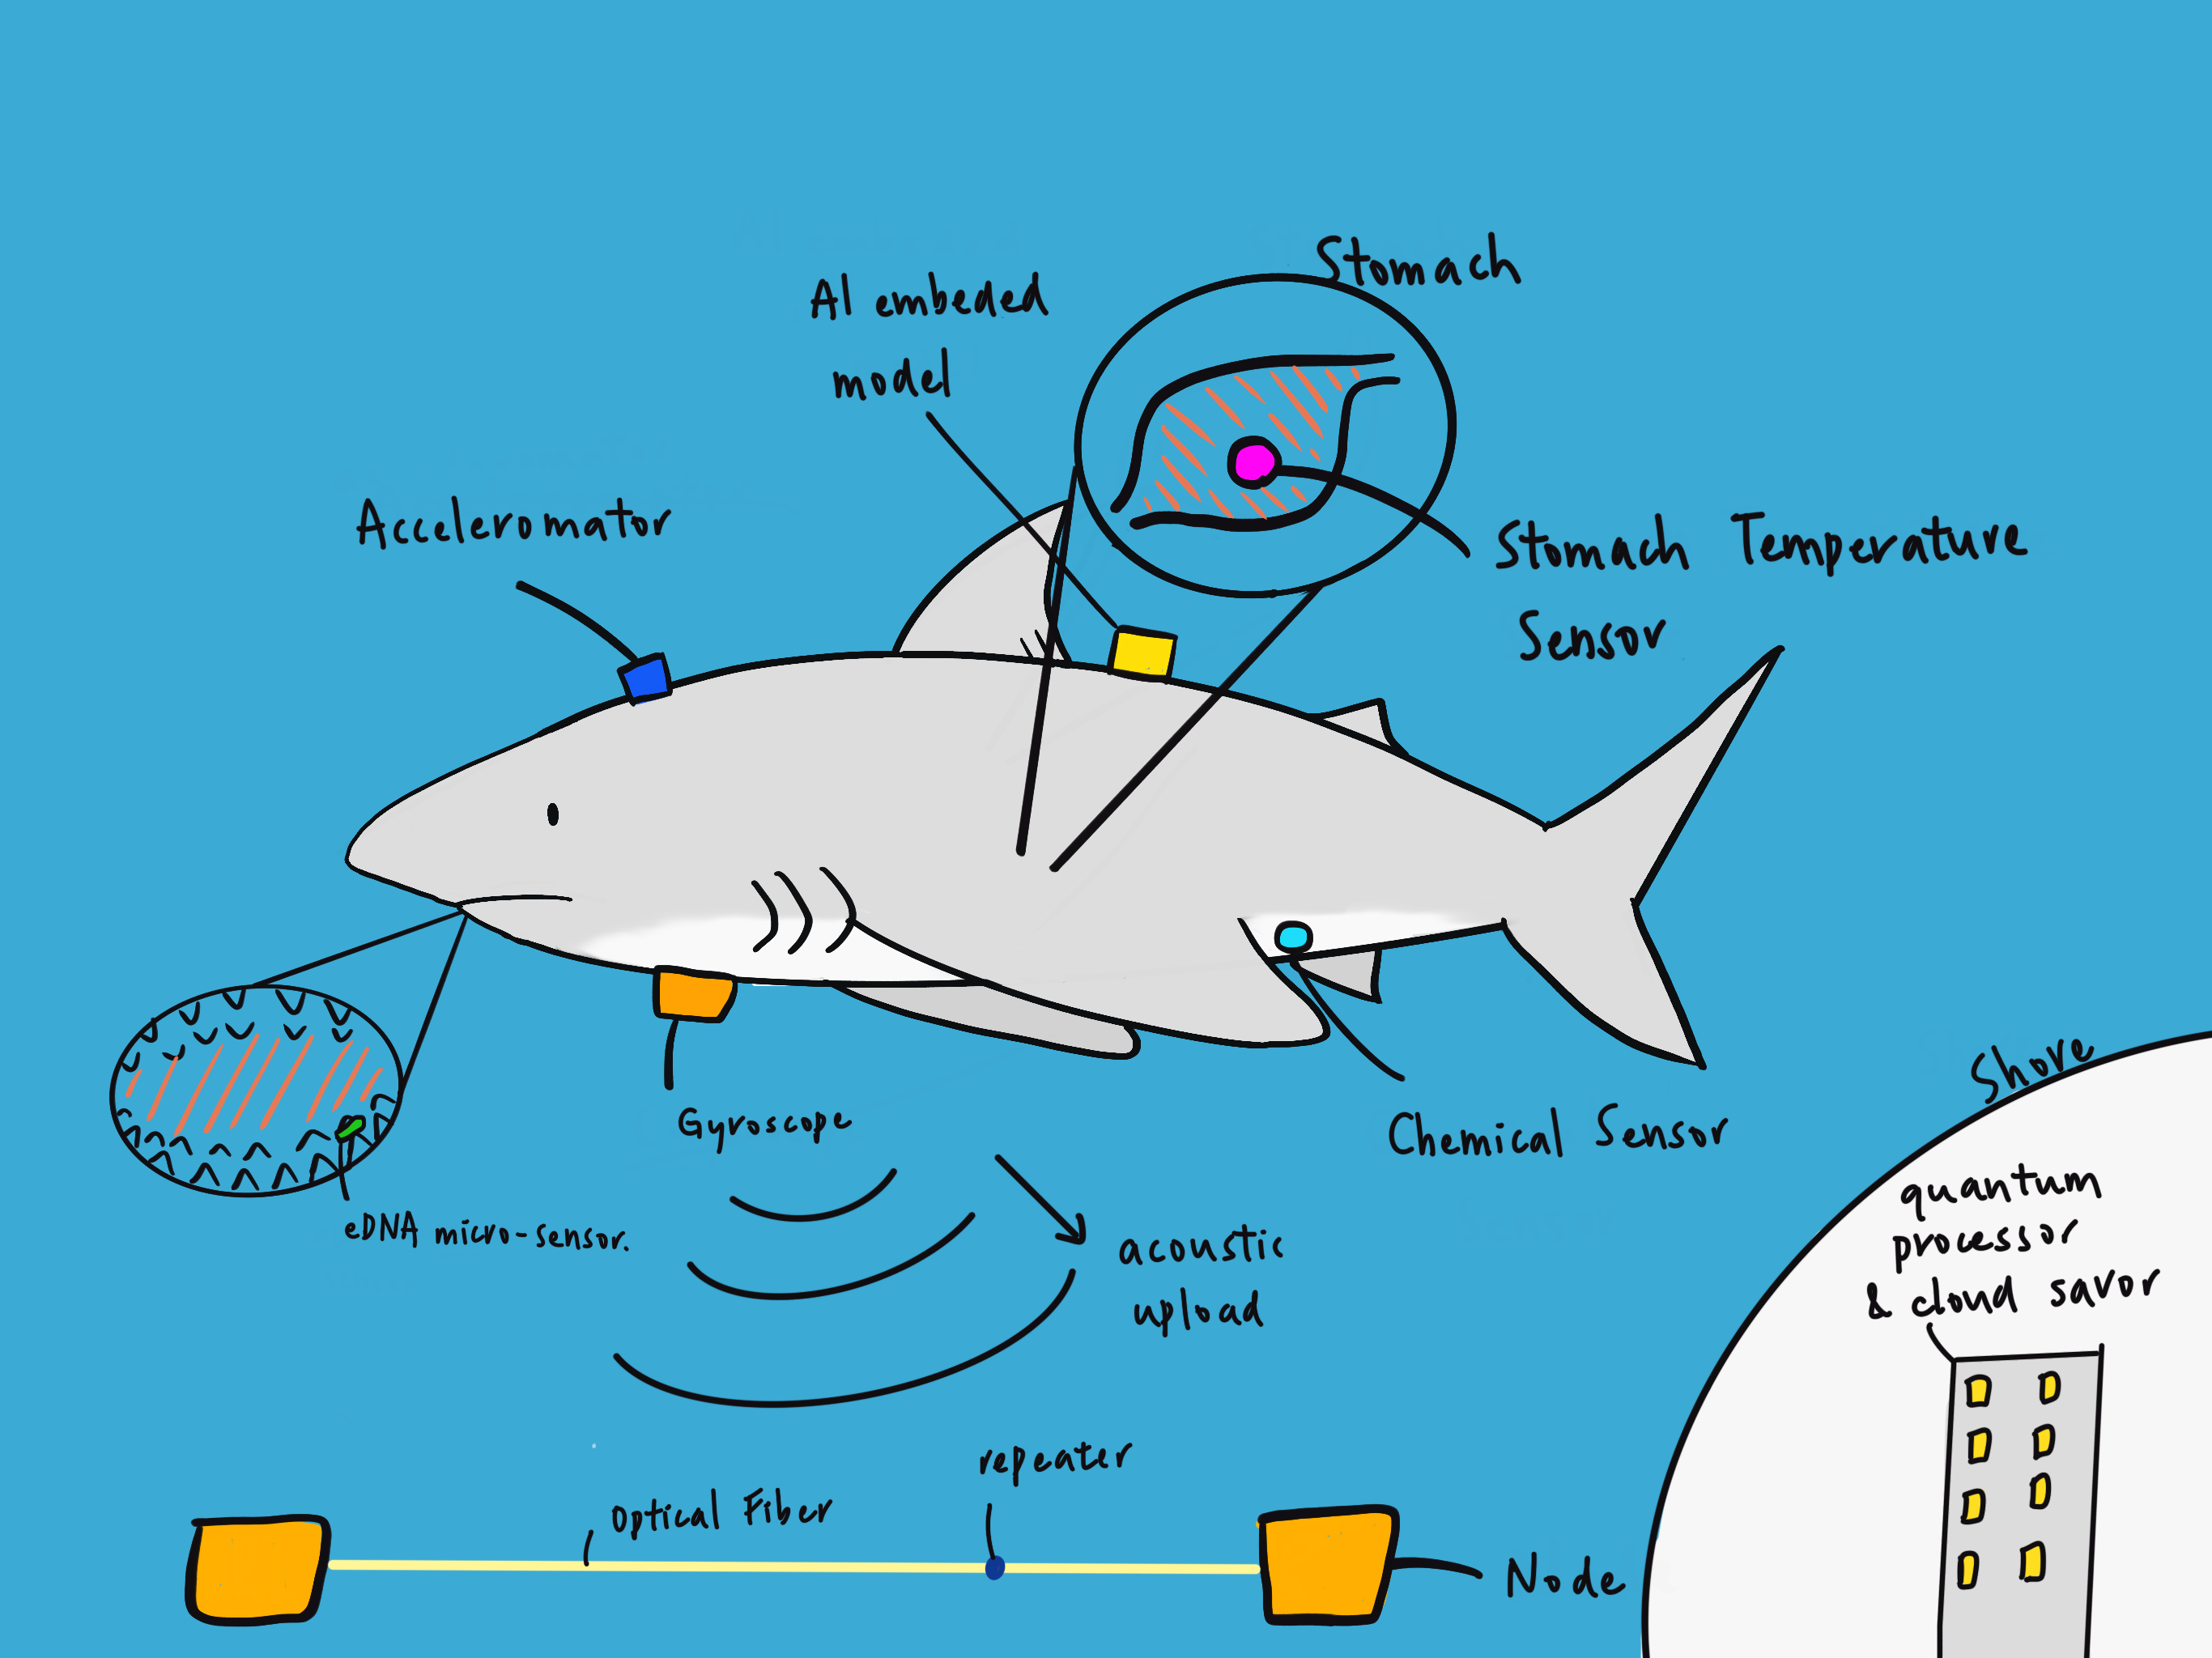 Stomach
AI embeded
model
Acceleromator
Stomach Temperature
Sensor
Gyroscope
Chemical Sensor
eDNA micro-sensor.
acoustic
upload
Shore
quantum
processor
& cloud savor
repeater
Optical Fiber
Node